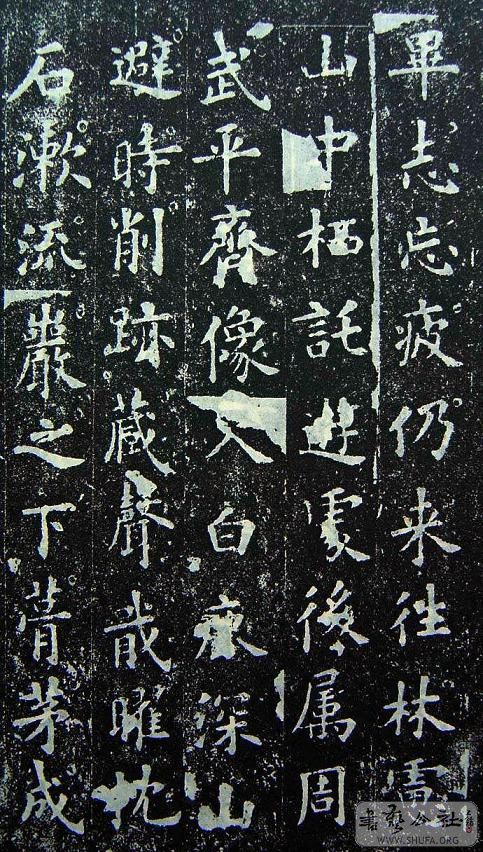 畢志忘疲仍来往林慮
山中栖託遊處後属周
武平齊像入白鹿深山
避時削跡藏聲戢曜枕
石漱流巖之下葺茅成
書藝公社
WWW.SHUFA.ORG